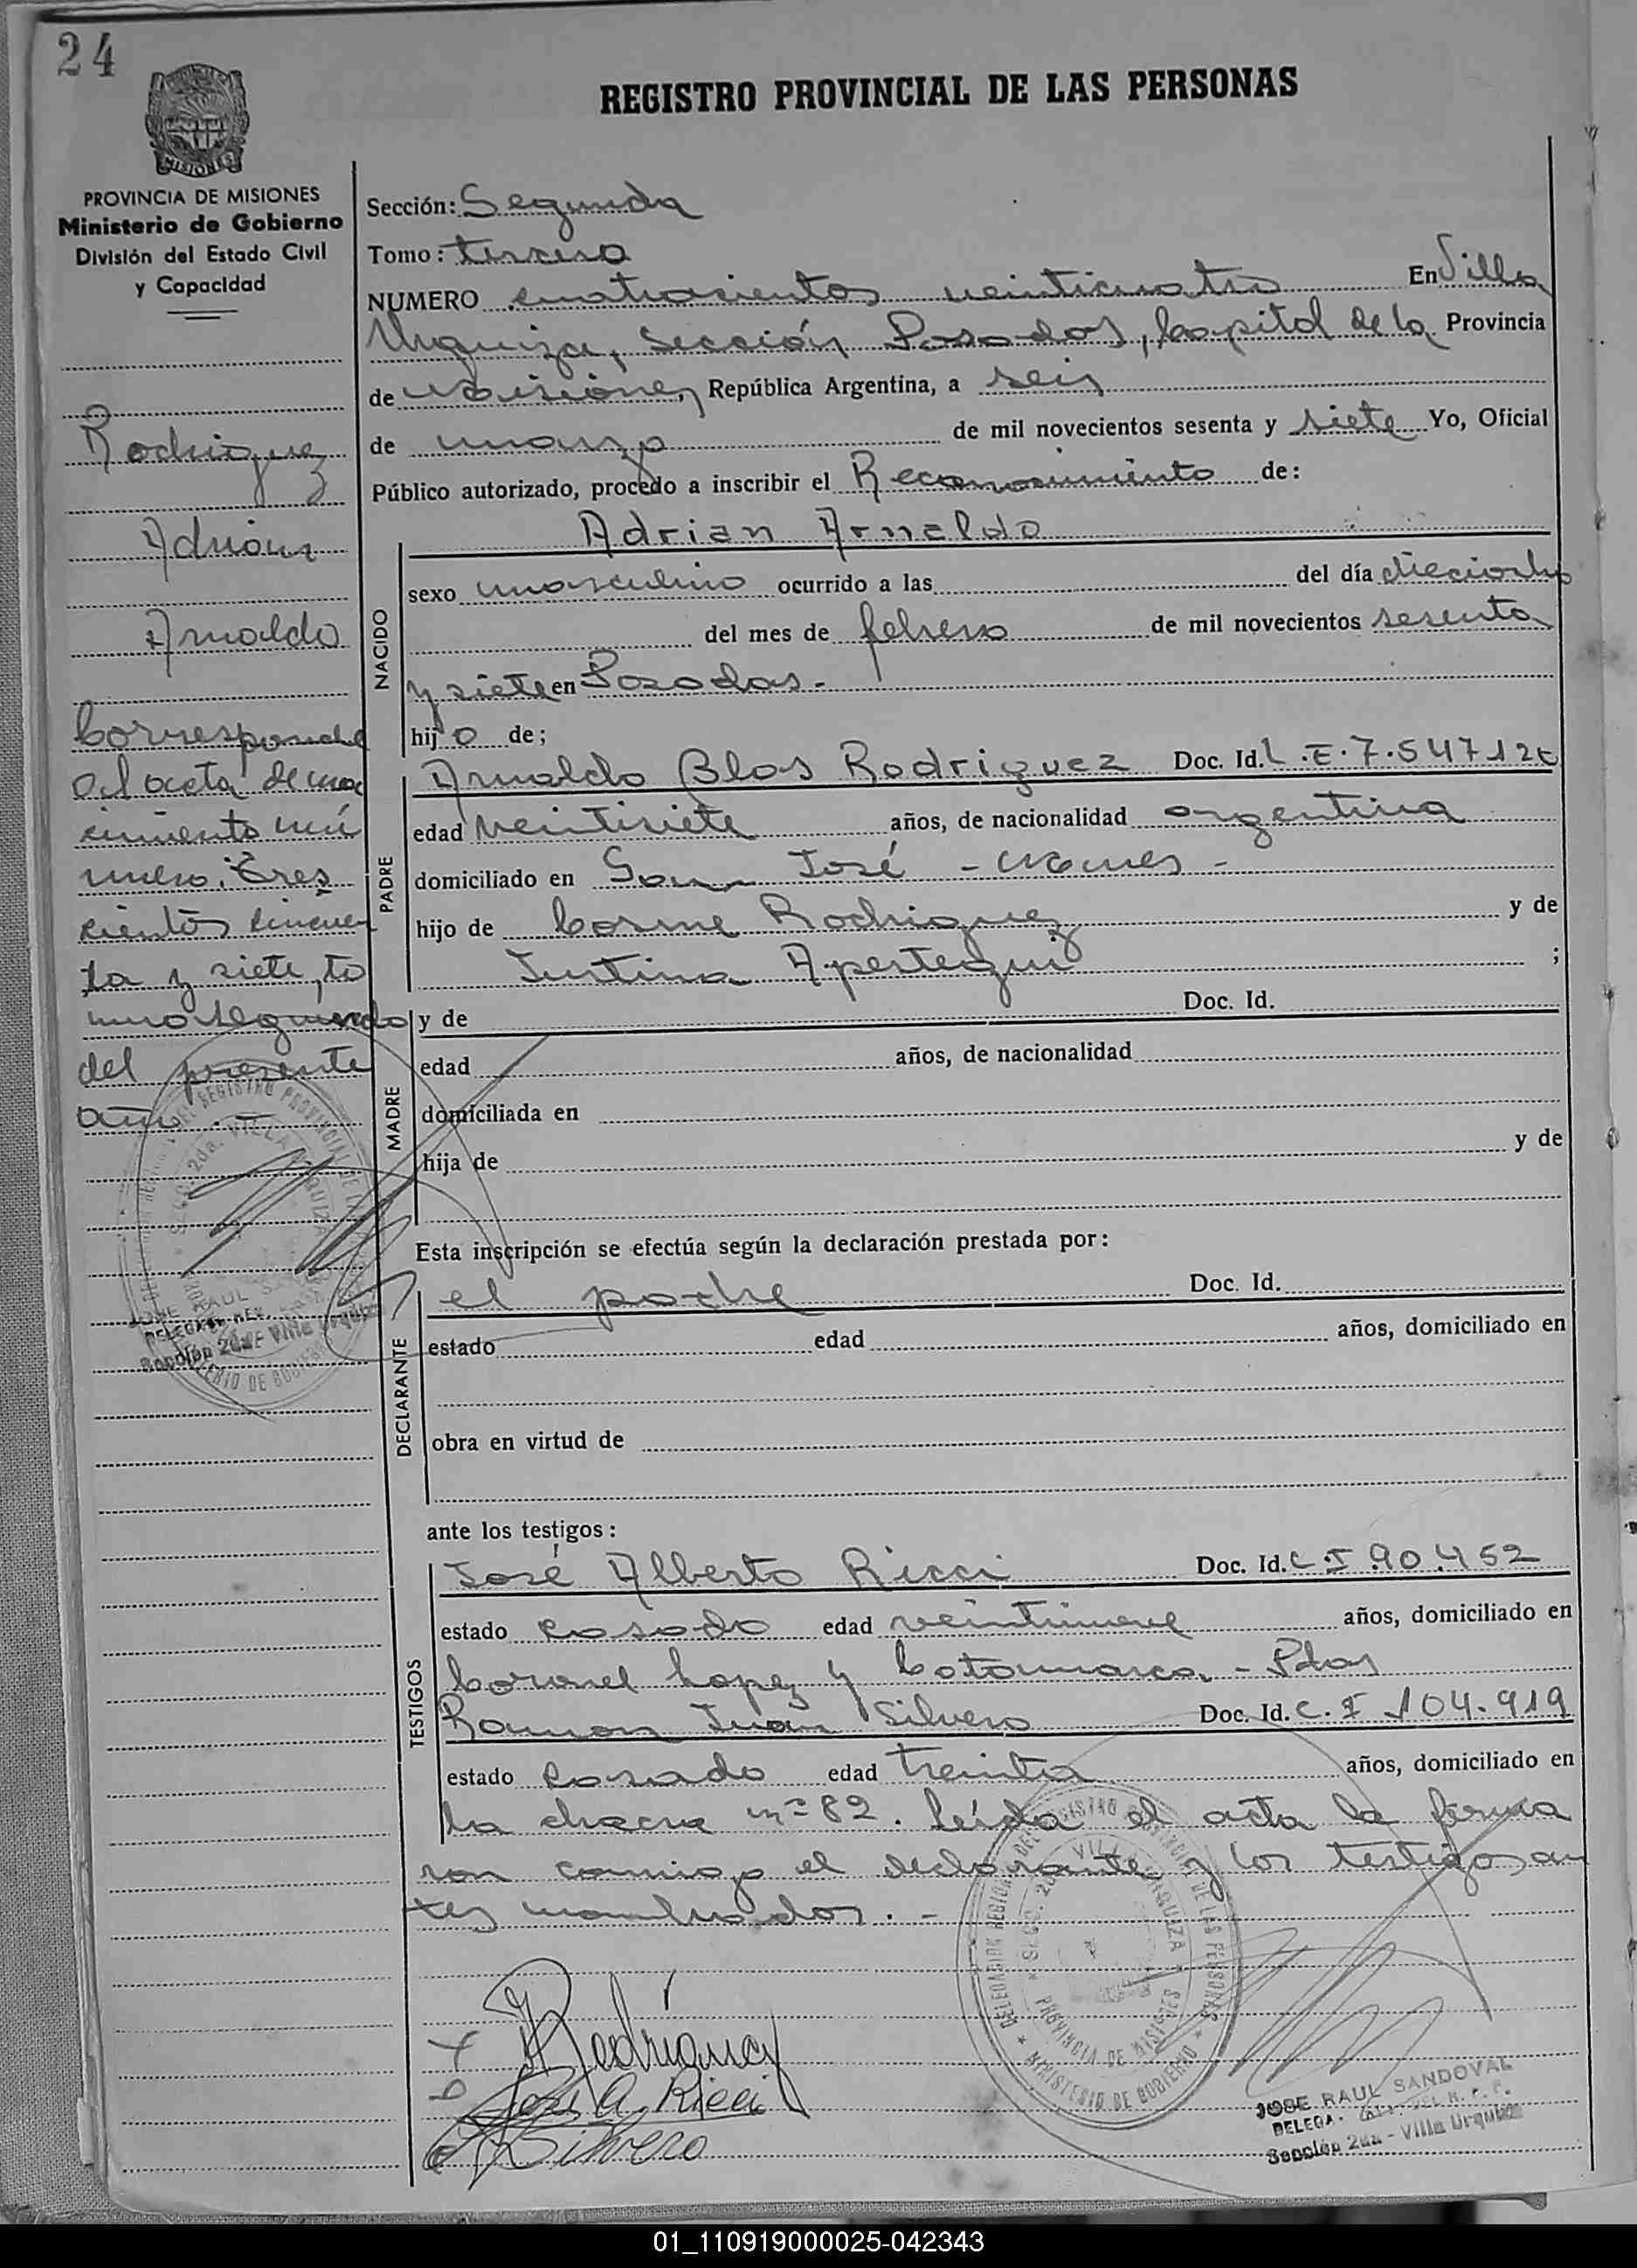 24
MISIONES
REGISTRO PROVINCIAL DE LAS PERSONAS
PROVINCIA DE MISIONES
Ministerio de Gobierno
División del Estado Civil
y Capacidad
Rodriguez
Adrian
Arnaldo
Corresponde
al acta de na
cimiento nú
mero: tres
cientos cincuen
ta y siete, to
mo segundo
del presente
año.
Sección: Segunda
Tomo: tercero
NUMERO cuatrocientos veinticuatro En Villa
Urquiza, Sección Posadas, Capital de la Provincia
de Misiones, República Argentina, a seis
de marzo de mil novecientos sesenta y siete Yo, Oficial
Público autorizado, procedo a inscribir el Reconocimiento de:
NACIDO
Adrian Arnaldo
sexo masculino ocurrido a las del día dieciocho
del mes de febrero de mil novecientos sesenta
y siete en Posadas.-
hijo de;
PADRE
Arnaldo Blas Rodriguez Doc. Id. L.E. 7.547.126
edad veintisiete años, de nacionalidad argentina
domiciliado en San José - Mnes -
hijo de Cosme Rodriguez y de
Justina Apertegui ;
MADRE
y de Doc. Id.
edad años, de nacionalidad
domiciliada en
hija de y de
Esta inscripción se efectúa según la declaración prestada por:
DECLARANTE
el padre Doc. Id.
estado edad años, domiciliado en
obra en virtud de
ante los testigos:
TESTIGOS
José Alberto Ricci Doc. Id. C.I 90.452
estado casado edad veintinueve años, domiciliado en
Coronel Lopez y Catamarca - Pdas
Ramon Juan Silvero Doc. Id. C.I 104.919
estado casado edad treinta años, domiciliado en
la chacra nº 82. Leída el acta la firma
ron conmigo el declarante y los testigos an
tes nombrados. -
Rodriguez
José A. Ricci
Silvero
DELEGACION REGIONAL DEL REGISTRO PROVINCIAL DE LAS PERSONAS
SECC. 2da. VILLA URQUIZA
PROVINCIA DE MISIONES
MINISTERIO DE GOBIERNO
JOSE RAUL SANDOVAL
Sección 2da - Villa Urquiza
01_110919000025-042343